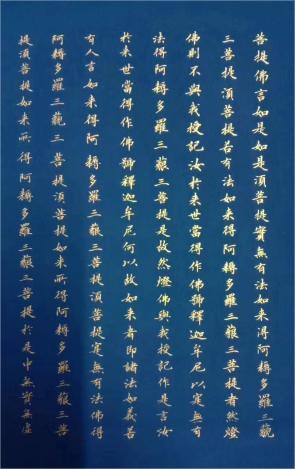 菩提佛言如是如是須菩提實無有法如来得阿耨多羅三藐
三菩提須菩提若有法如来得阿耨多羅三藐三菩提者然燈
佛則不與我授記汝於来世當得作佛號釋迦牟尼以實無有
法得阿耨多羅三藐三菩提是故然燈佛與我授記作是言汝
於来世當得作佛號釋迦牟尼何以故如来者即諸法如義若
有人言如来得阿耨多羅三藐三菩提須菩提實無有法佛得
阿耨多羅三藐三菩提須菩提如来所得阿耨多羅三藐三菩
提須菩提如来所得阿耨多羅三藐三菩提於是中無實無虛